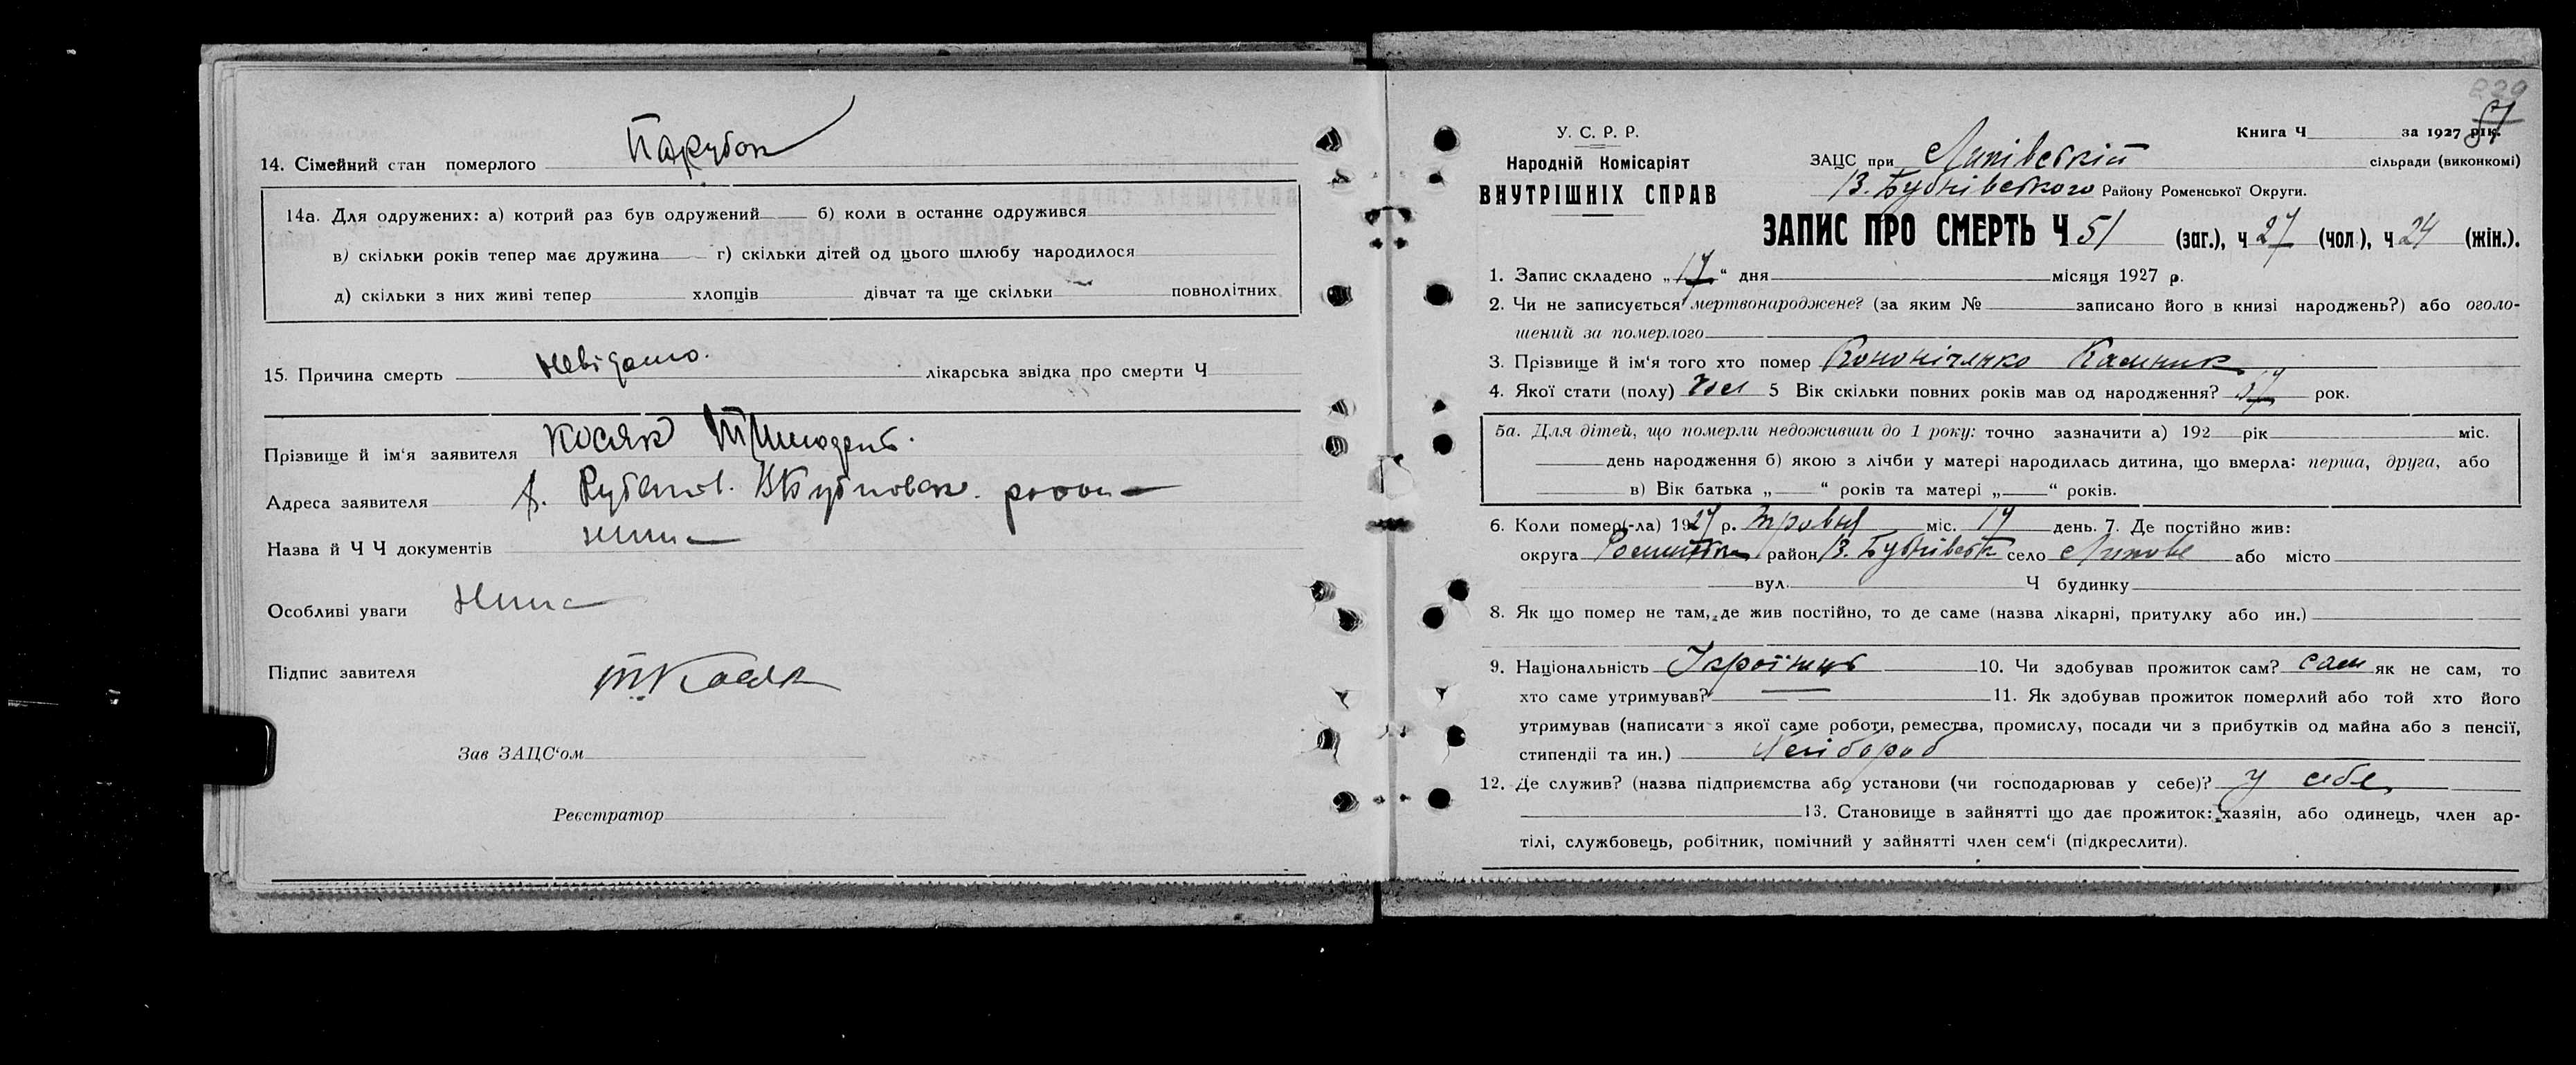 14. Сімейний стан померлого Парубок
14а. Для одружених: а) котрий раз був одружений б) коли в останнє одружився
в) скільки років тепер має дружина г) скільки дітей од цього шлюбу народилося
д) скільки з них живі тепер хлопців дівчат та ще скільки повнолітних
15. Причина смерть невідомо. лікарська звідка про смерти Ч
Прізвище й ім‘я заявителя Косяк
Адреса заявителя
Назва й Ч Ч документів нима
Особливі уваги нима
Підпис завителя Т. Косяк
Зав ЗАЦС‘ом
Реєстратор
229
51
У. С. Р. Р.
Народній Комісаріят
ВНУТРІШНІХ СПРАВ
Книга Ч за 1927 рік.
ЗАЦС при Липівській сільради (виконкомі)
В. Бубнівського Району Роменської Округи.
ЗАПИС ПРО СМЕРТЬ Ч 51 (заг.), ч 27 (чол.), ч 24 (жін.).
1. Запис складено „17“ дня місяця 1927 р.
2. Чи не записується мертвонароджене? (за яким № записано його в книзі народжень?) або оголо-
шений за померлого
3. Прізвище й ім‘я того хто помер
4. Якої стати (полу) чол 5 Вік скільки повних років мав од народження? рок.
5а. Для дітей, що померли недоживши до 1 року: точно зазначити а) 192 рік міс.
день народження б) якою з лічби у матері народилась дитина, що вмерла: перша, друга, або
в) Вік батька „ “ років та матері „ “ років.
6. Коли помер(-ла) 1927 р. травня міс. 17 день. 7. Де постійно жив:
округа Роменська район В. Бубнівськ село Липове або місто
вул. Ч будинку
8. Як що помер не там, де жив постійно, то де саме (назва лікарні, притулку або ин.)
9. Національність Українець 10. Чи здобував прожиток сам? сам як не сам, то
хто саме утримував? 11. Як здобував прожиток померлий або той хто його
утримував (написати з якої саме роботи, ремества, промислу, посади чи з прибутків од майна або з пенсії,
стипендії та ин.) Хлібороб
12. Де служив? (назва підприємства або установи (чи господарював у себе)? у себе
13. Становище в зайнятті що дає прожиток: хазяін, або одинець, член ар-
тілі, службовець, робітник, помічний у зайнятті член сем‘і (підкреслити).